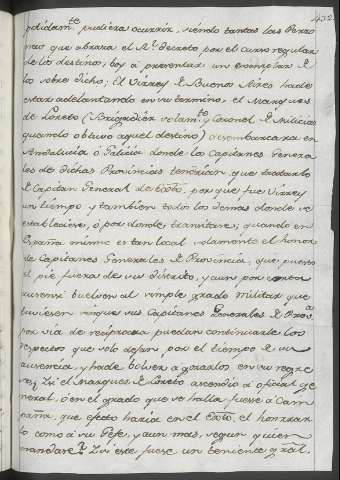 432
pudiera ocurrir, siendo tantas las Perso
nas que abraza el Rl. Decreto por el curso regular
de los destinos; voy á presentar un exemplar de
lo sobre dicho; El Virrey de Buenos Aires ha de
estar adelantando en su termino, el Marques
de Loreto (Brigadier solamte. y Coronel de Milicias
quando obtuvo aquel destino) desembarcara en
Andalucia ó Galicia donde los Capitanes Genera
les de dichas Provincias tendrian que tratarlo
de Capitan General de Exto. porque fue Virrey
un tiempo y tambien todos los demas donde se
estableciese, ó por donde transitare, quando en
España mismo es tan local solamente el honor
de Capitanes Generales de Provincia, que puesto
el pie fuera de su distrito, y aun por corta
ausencia buelven al simple grado militar que
tuviesen sin que sus Capitanes Generales de Prova.
por via de reciproca puedan continuarle los
respectos que solo dejan por el tiempo de su
ausencia, y ha de bolver á gozarlos en su regre
so; Si el Marques de Loreto ascendió á oficial ge
neral, ó en el grado que se halla fuese á Cam
paña, que efecto haria en el Exto. el honrrar
lo como á su Gefe, y aun mas, segun quien
mandare? Si este fuese un teniente gral.